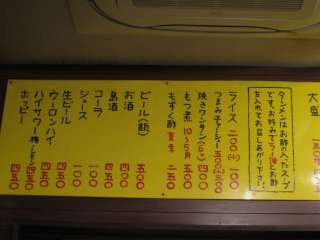 大盛
ターメンはお酢の入ったスープ
です。お好みでラー油とお酢
を入れてお召しあがり下さい。
ライス 二〇〇 (小) 一〇〇
つまみチャーシュー 五〇〇
焼きワンタン(6ヶ) 四〇〇
もつ煮 10～5月 五〇〇
もずく酢 二五〇
ビール(瓶) 五〇〇
お酒 四〇〇
島酒 五〇〇
コーラ 一〇〇
ジュース 一〇〇
生ビール 四五〇
ウーロンハイ 四五〇
ハイサワー 梅・レモン 四五〇
ホッピー 四五〇